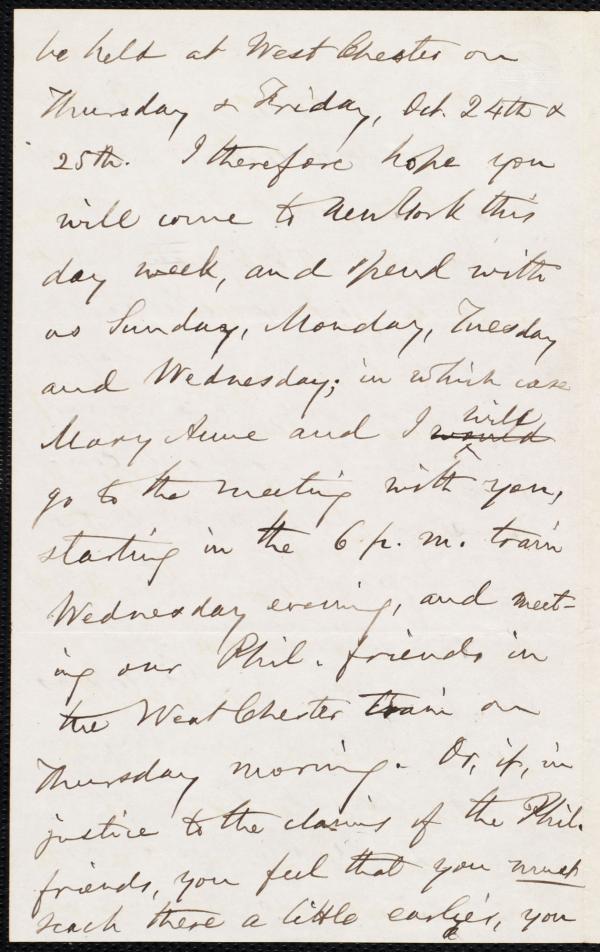 be held at West Chester on
Thursday & Friday, Oct. 24th &
25th. I therefore hope you
will come to New York this
day week, and spend with
us Sunday, Monday, Tuesday
and Wednesday; in which case
will
Mary Anne and I would
go to the meeting with you,
starting in the 6 p. m. train
Wednesday evening, and meet-
ing our Phil. friends in
the West Chester train on
Thursday morning. Or, if, in
justice to the claims of the Phil.
friends, you feel that you must
reach there a little earlier, you